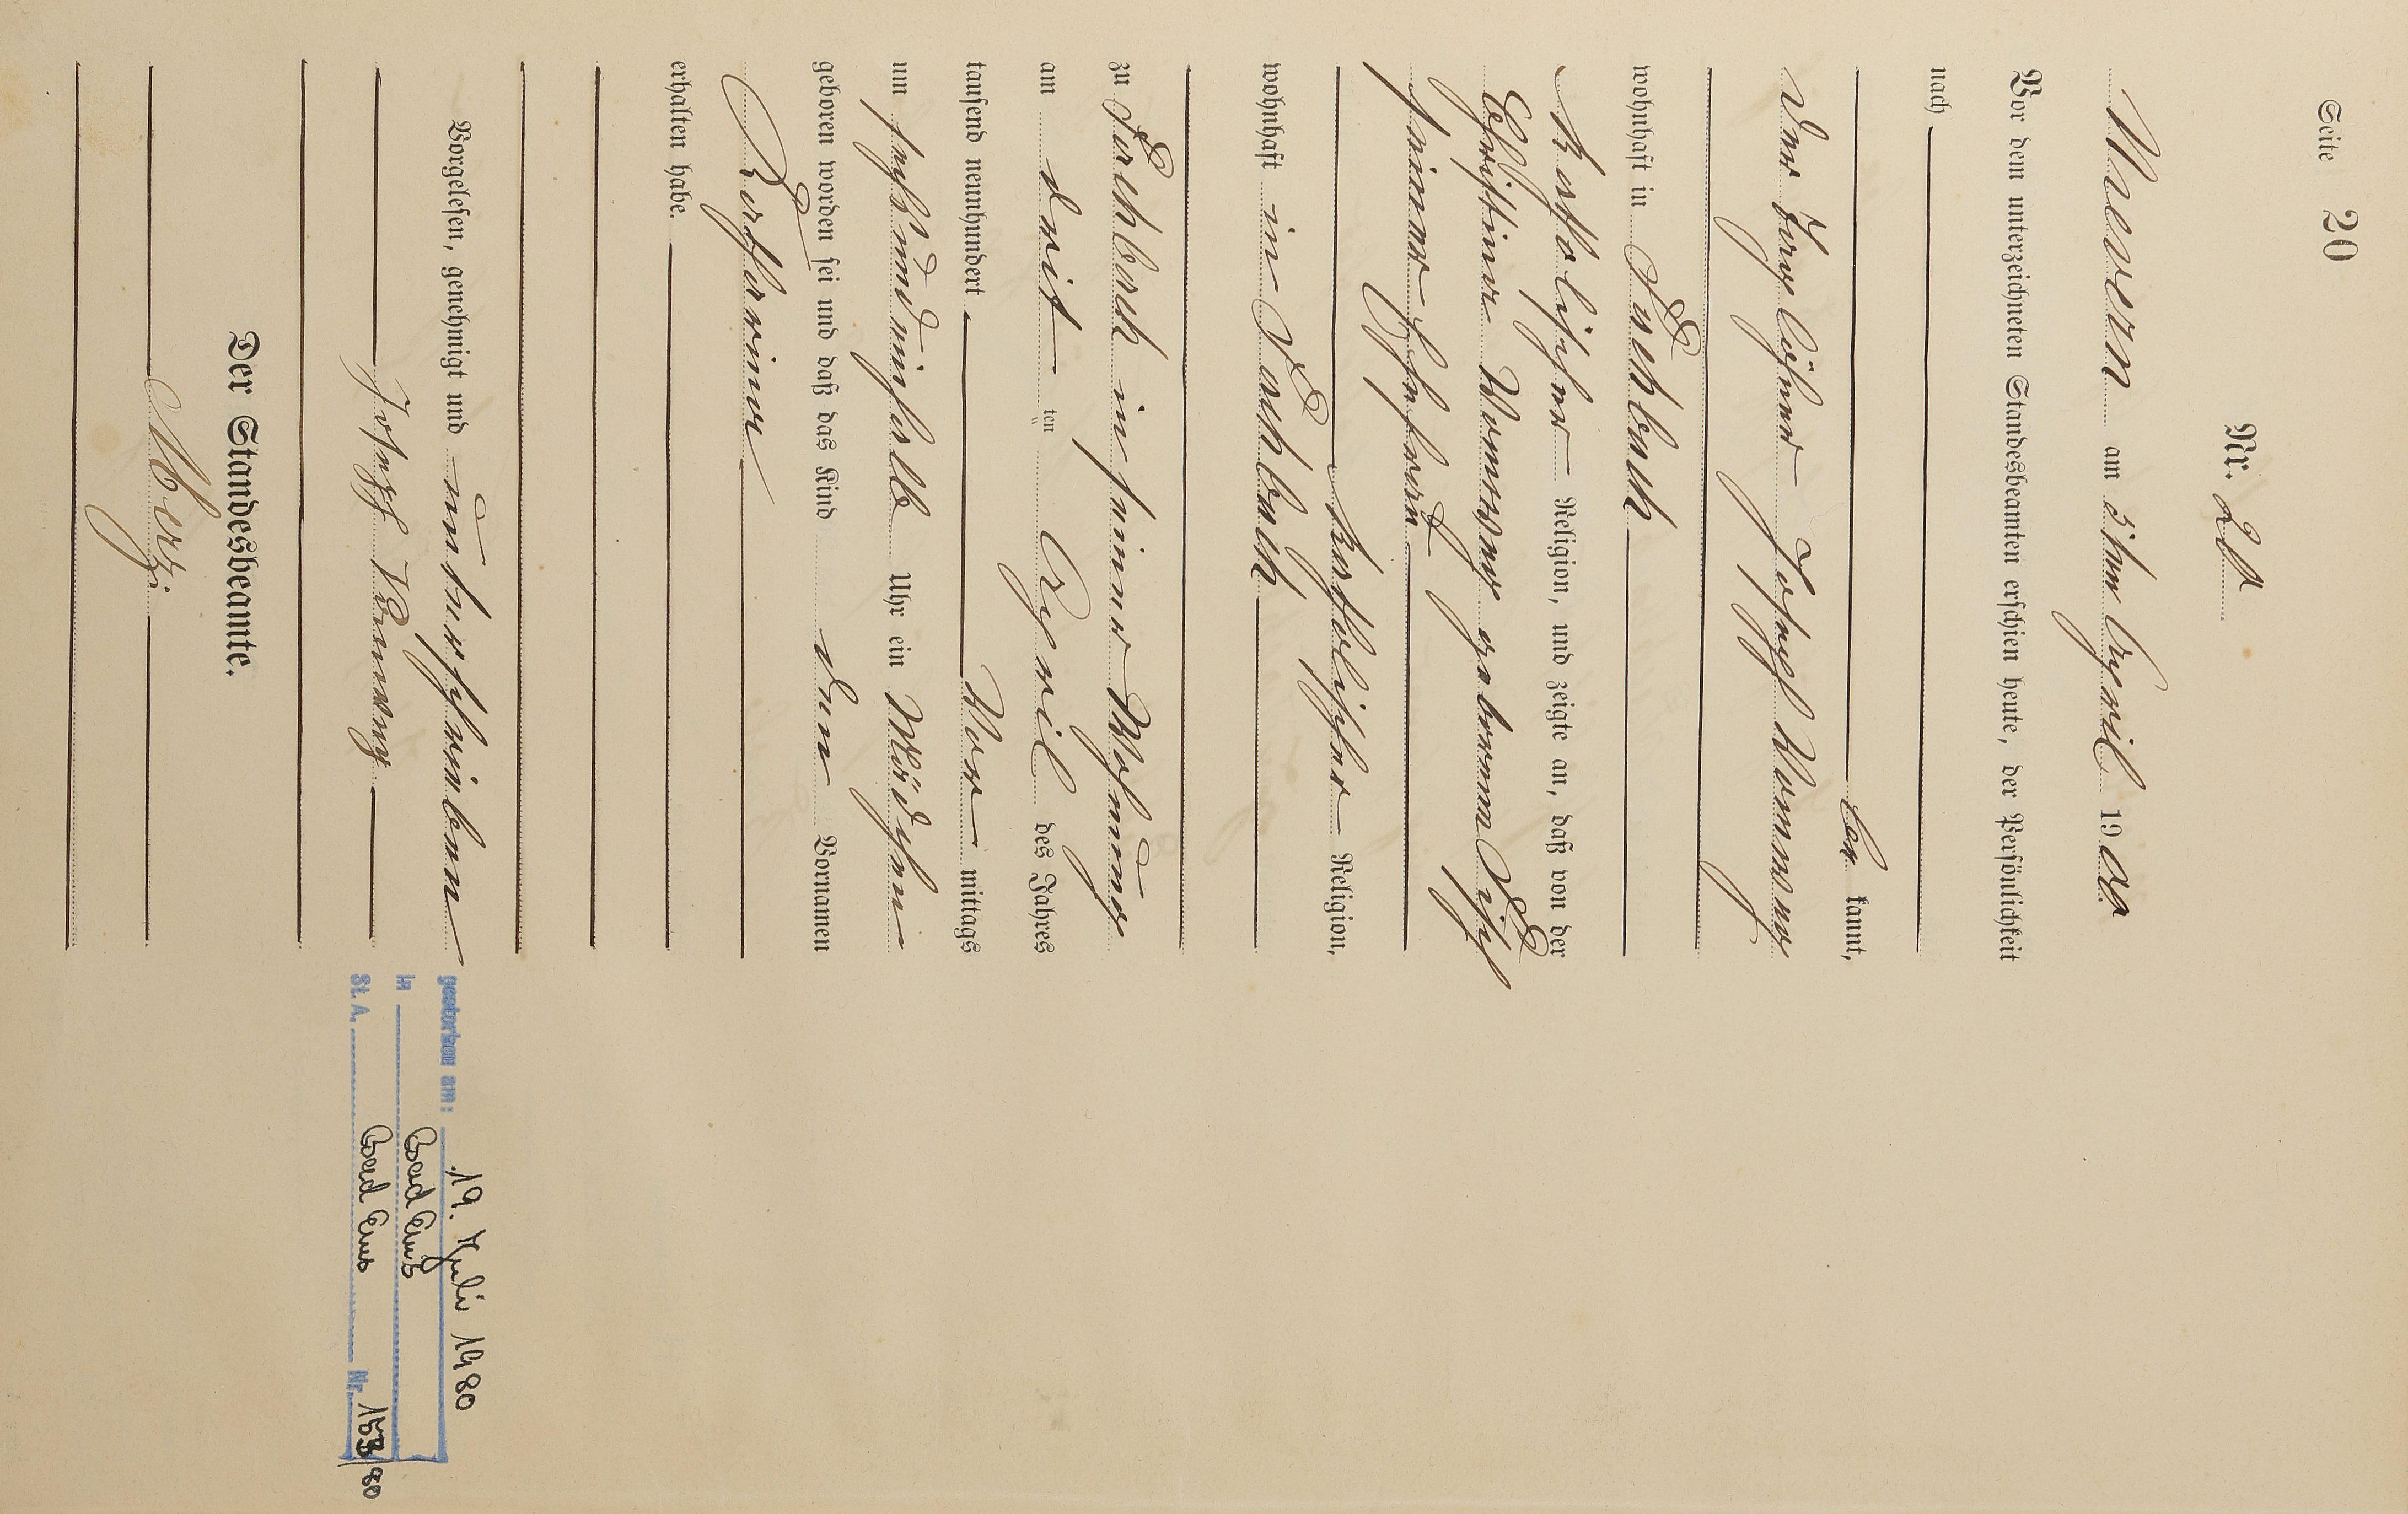 Seite 20
Nr. 20
Nievern am 5ten April 1900
Vor dem unterzeichneten Standesbeamten erschien heute, der Persönlichkeit
nach
be kannt,
der Tagelöhner Joseph
wohnhaft in Fachbach
katholischer Religion, und zeigte an, daß von der
Christine geborenen
seiner Ehefrau
katholischer Religion,
wohnhaft in Fachbach
zu Fachbach in seiner Wohnung
am drit ten April des Jahres
tausend neunhundert Vor mittags
um sechs und einhalb Uhr ein Mädchen
geboren worden sei und daß das Kind den Vornamen
Katharina
erhalten habe.
Vorgelesen, genehmigt und unterschrieben
Joseph
Der Standesbeamte.
Merz.
gestorben am: 19. Juli 1980
in Bad Ems
St. A. Bad Ems Nr.